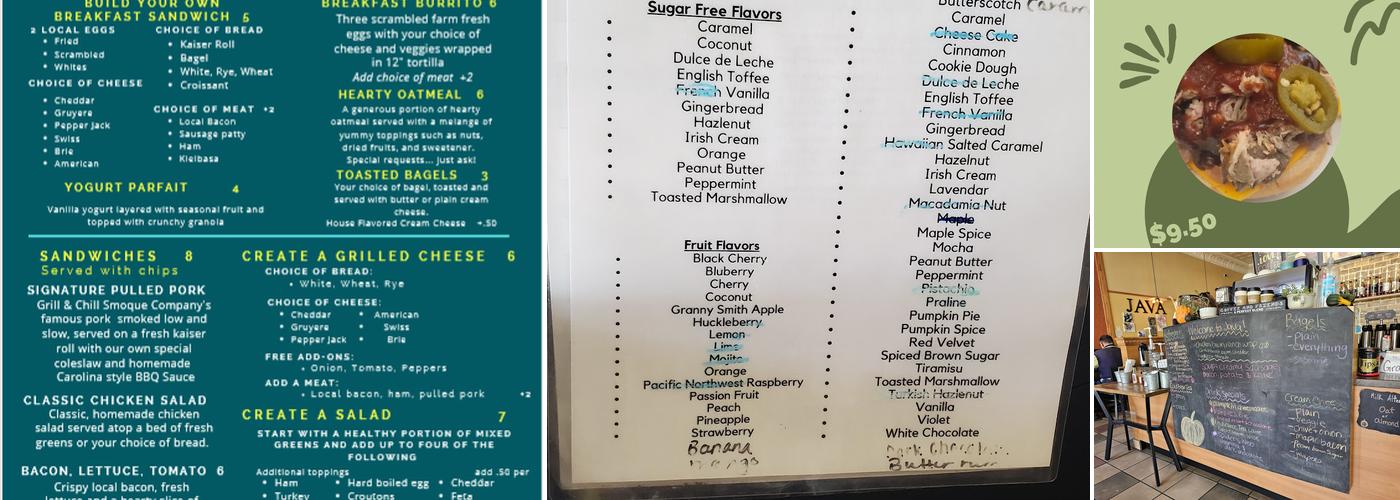 BUILD YOUR OWN
BREAKFAST SANDWICH 5
2 LOCAL EGGS
• Fried
• Scrambled
• Whites
CHOICE OF CHEESE
• Cheddar
• Gruyere
• Pepper Jack
• Swiss
• Brie
• American
CHOICE OF BREAD
• Kaiser Roll
• Bagel
• White, Rye, Wheat
• Croissant
CHOICE OF MEAT +2
• Local Bacon
• Sausage patty
• Ham
• Kielbasa
YOGURT PARFAIT 4
Vanilla yogurt layered with seasonal fruit and
topped with crunchy granola
BREAKFAST BURRITO 6
Three scrambled farm fresh
eggs with your choice of
cheese and veggies wrapped
in 12" tortilla
Add choice of meat +2
HEARTY OATMEAL 6
A generous portion of hearty
oatmeal served with a melange of
yummy toppings such as nuts,
dried fruits, and sweetener.
Special requests... just ask!
TOASTED BAGELS 3
Your choice of bagel, toasted and
served with butter or plain cream
cheese.
House Flavored Cream Cheese +.50
SANDWICHES 8
Served with chips
SIGNATURE PULLED PORK
Grill & Chill Smoque Company's
famous pork smoked low and
slow, served on a fresh kaiser
roll with our own special
coleslaw and homemade
Carolina style BBQ Sauce
CLASSIC CHICKEN SALAD
Classic, homemade chicken
salad served atop a bed of fresh
greens or your choice of bread.
BACON, LETTUCE, TOMATO 6
Crispy local bacon, fresh
lettuce and a hearty slice of
CREATE A GRILLED CHEESE 6
CHOICE OF BREAD:
• White, Wheat, Rye
CHOICE OF CHEESE:
• Cheddar • American
• Gruyere • Swiss
• Pepper Jack • Brie
FREE ADD-ONS:
• Onion, Tomato, Peppers
ADD A MEAT:
• Local bacon, ham, pulled pork +2
CREATE A SALAD 7
START WITH A HEALTHY PORTION OF MIXED
GREENS AND ADD UP TO FOUR OF THE
FOLLOWING
Additional toppings add .50 per
• Ham • Hard boiled egg • Cheddar
• Turkey • Croutons • Feta
Sugar Free Flavors
Caramel
Coconut
Dulce de Leche
English Toffee
French Vanilla
Gingerbread
Hazlenut
Irish Cream
Orange
Peanut Butter
Peppermint
Toasted Marshmallow
Fruit Flavors
Black Cherry
Bluberry
Cherry
Coconut
Granny Smith Apple
Huckleberry
Lemon
Lime
Mojito
Orange
Pacific Northwest Raspberry
Passion Fruit
Peach
Pineapple
Strawberry
Banana
mango
Butterscotch Caram
Caramel
Cheese Cake
Cinnamon
Cookie Dough
Dulce de Leche
English Toffee
French Vanilla
Gingerbread
Hawaiian Salted Caramel
Hazelnut
Irish Cream
Lavendar
Macadamia Nut
Maple
Maple Spice
Mocha
Peanut Butter
Peppermint
Pistachio
Praline
Pumpkin Pie
Pumpkin Spice
Red Velvet
Spiced Brown Sugar
Tiramisu
Toasted Marshmallow
Turkish Hazlenut
Vanilla
Violet
White Chocolate
Dark Chocol
Butter rum
$9.50
JAVA
Welcome to Java!
Bagels
- plain
- everything
Cream Cheese
- Plain
- veggie
- chive + onion
- maple bacon